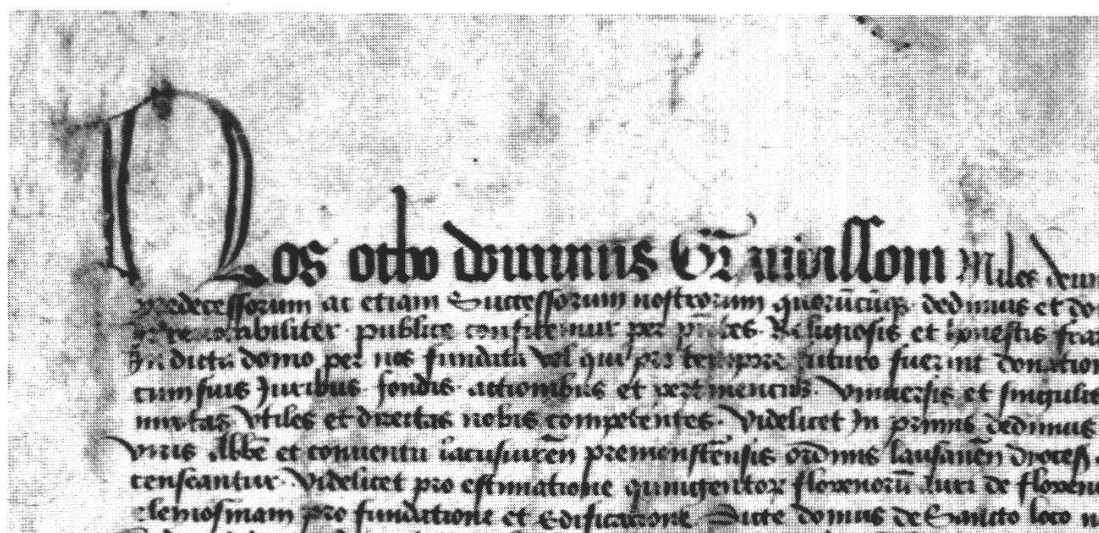 Nos otho dominus Gra Miles deum
predecessorum ac etiam Successorum nostrorum quorūcūq dedimus et do
publice confitemur per pn̄tes Religiosis et honestis fra
In dicta domo per nos fundata vel qui pro tempore futuro fuerint donation
cum suis Juribus fondis actionibus et pertinenciis Vniuersis et singulis
mixtas Vtiles et directas nobis competentes Videlicet In primis dedimus
viris Abbē et conuentu premonstrensis ordinis lausanēn dioces
censcantur Videlicet pro estimatione quingentor florenorū auri de floren
elemosinam pro fundatione et Edificatione Dicte domus de Sancto loco